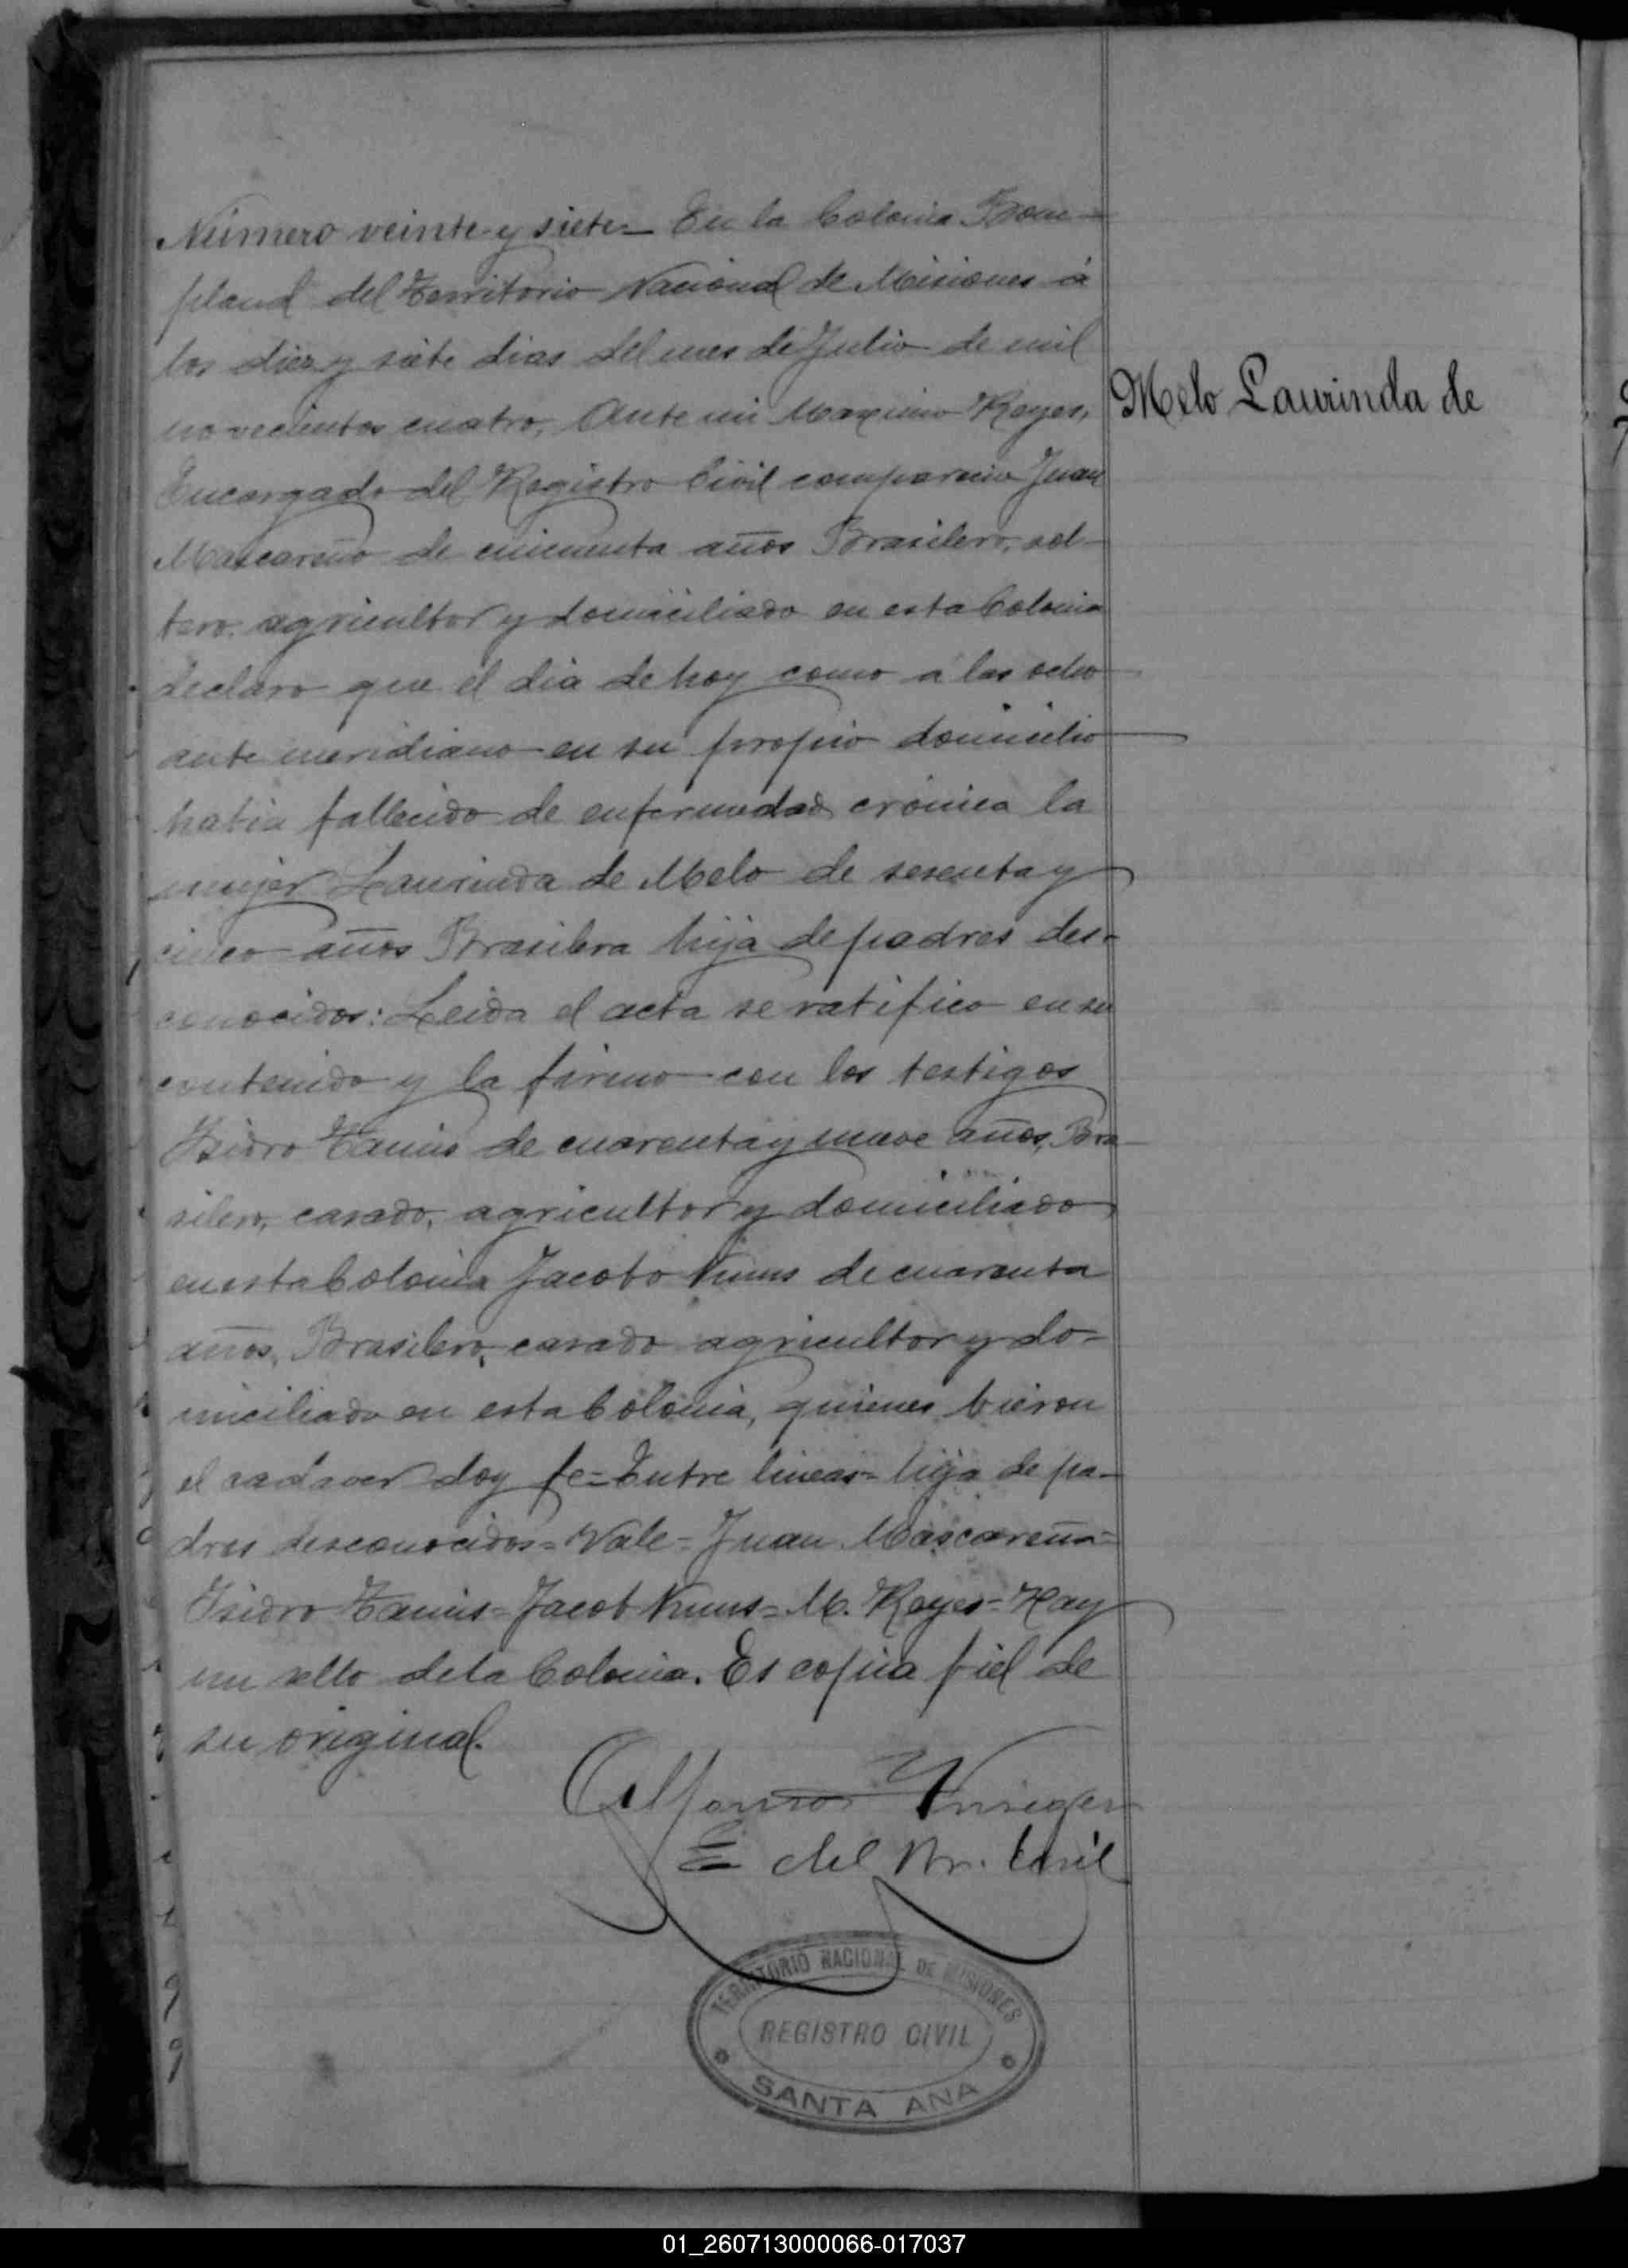 Número veinte y siete= En la Colonia Bom-
pland del Territorio Nacional de Misiones á
los diez y siete dias del mes de Julio de mil
novecientos cuatro, Ante mi Maximo Reyes,
Encargado del Registro Civil comparecio Juan
Mascareño de cincuenta años Brasilero, sol-
tero, agricultor y domiciliado en esta Colonia
declaro que el dia de hoy como a las ocho
ante meridiano en su propio domicilio
habia fallecido de enfermedad crónica la
mujer Laurinda de Melo de sesenta y
cinco años Brasilera hija de padres des-
conocidos: Leida el acta se ratifico en su
contenido y la firmo con los testigos
Isidro de cuarenta y nueve años, Bra-
silero, casado, agricultor y domiciliado
en esta Colonia Jacobo de cuarenta
años, Brasilero, casado agricultor y do-
miciliado en esta Colonia, quienes vieron
el cadaver doy fe=Entre lineas= hija de pa-
dres desconocidos= Vale= Juan Mascareña=
Isidro Jacob M. Reyes= Hay
un sello de la Colonia. Es copia fiel de
su original.
Alfonso
E del Civil
Melo Laurinda de
TERRITORIO NACIONAL DE MISIONES
REGISTRO CIVIL
SANTA ANA
01_260713000066-017037